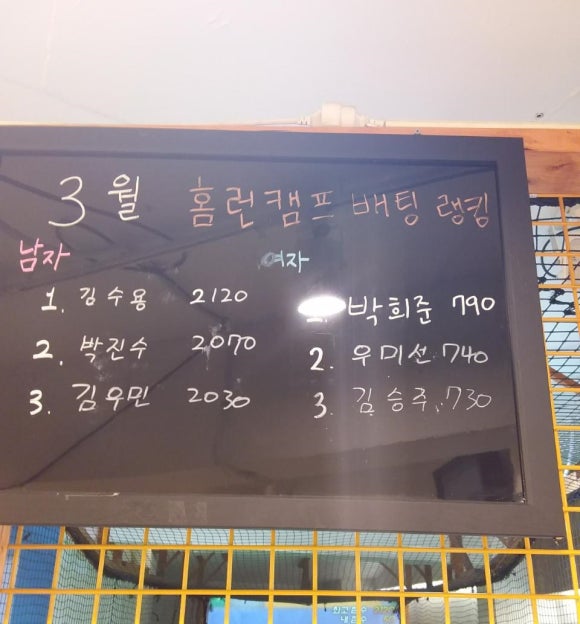 3월 홈런캠프 배팅 랭킹
남자 여자
1. 김수용 2120
2. 박진수 2070
3. 김우민 2030
1. 박희준 790
2. 우미선 740
3. 김승주 730
최고점수